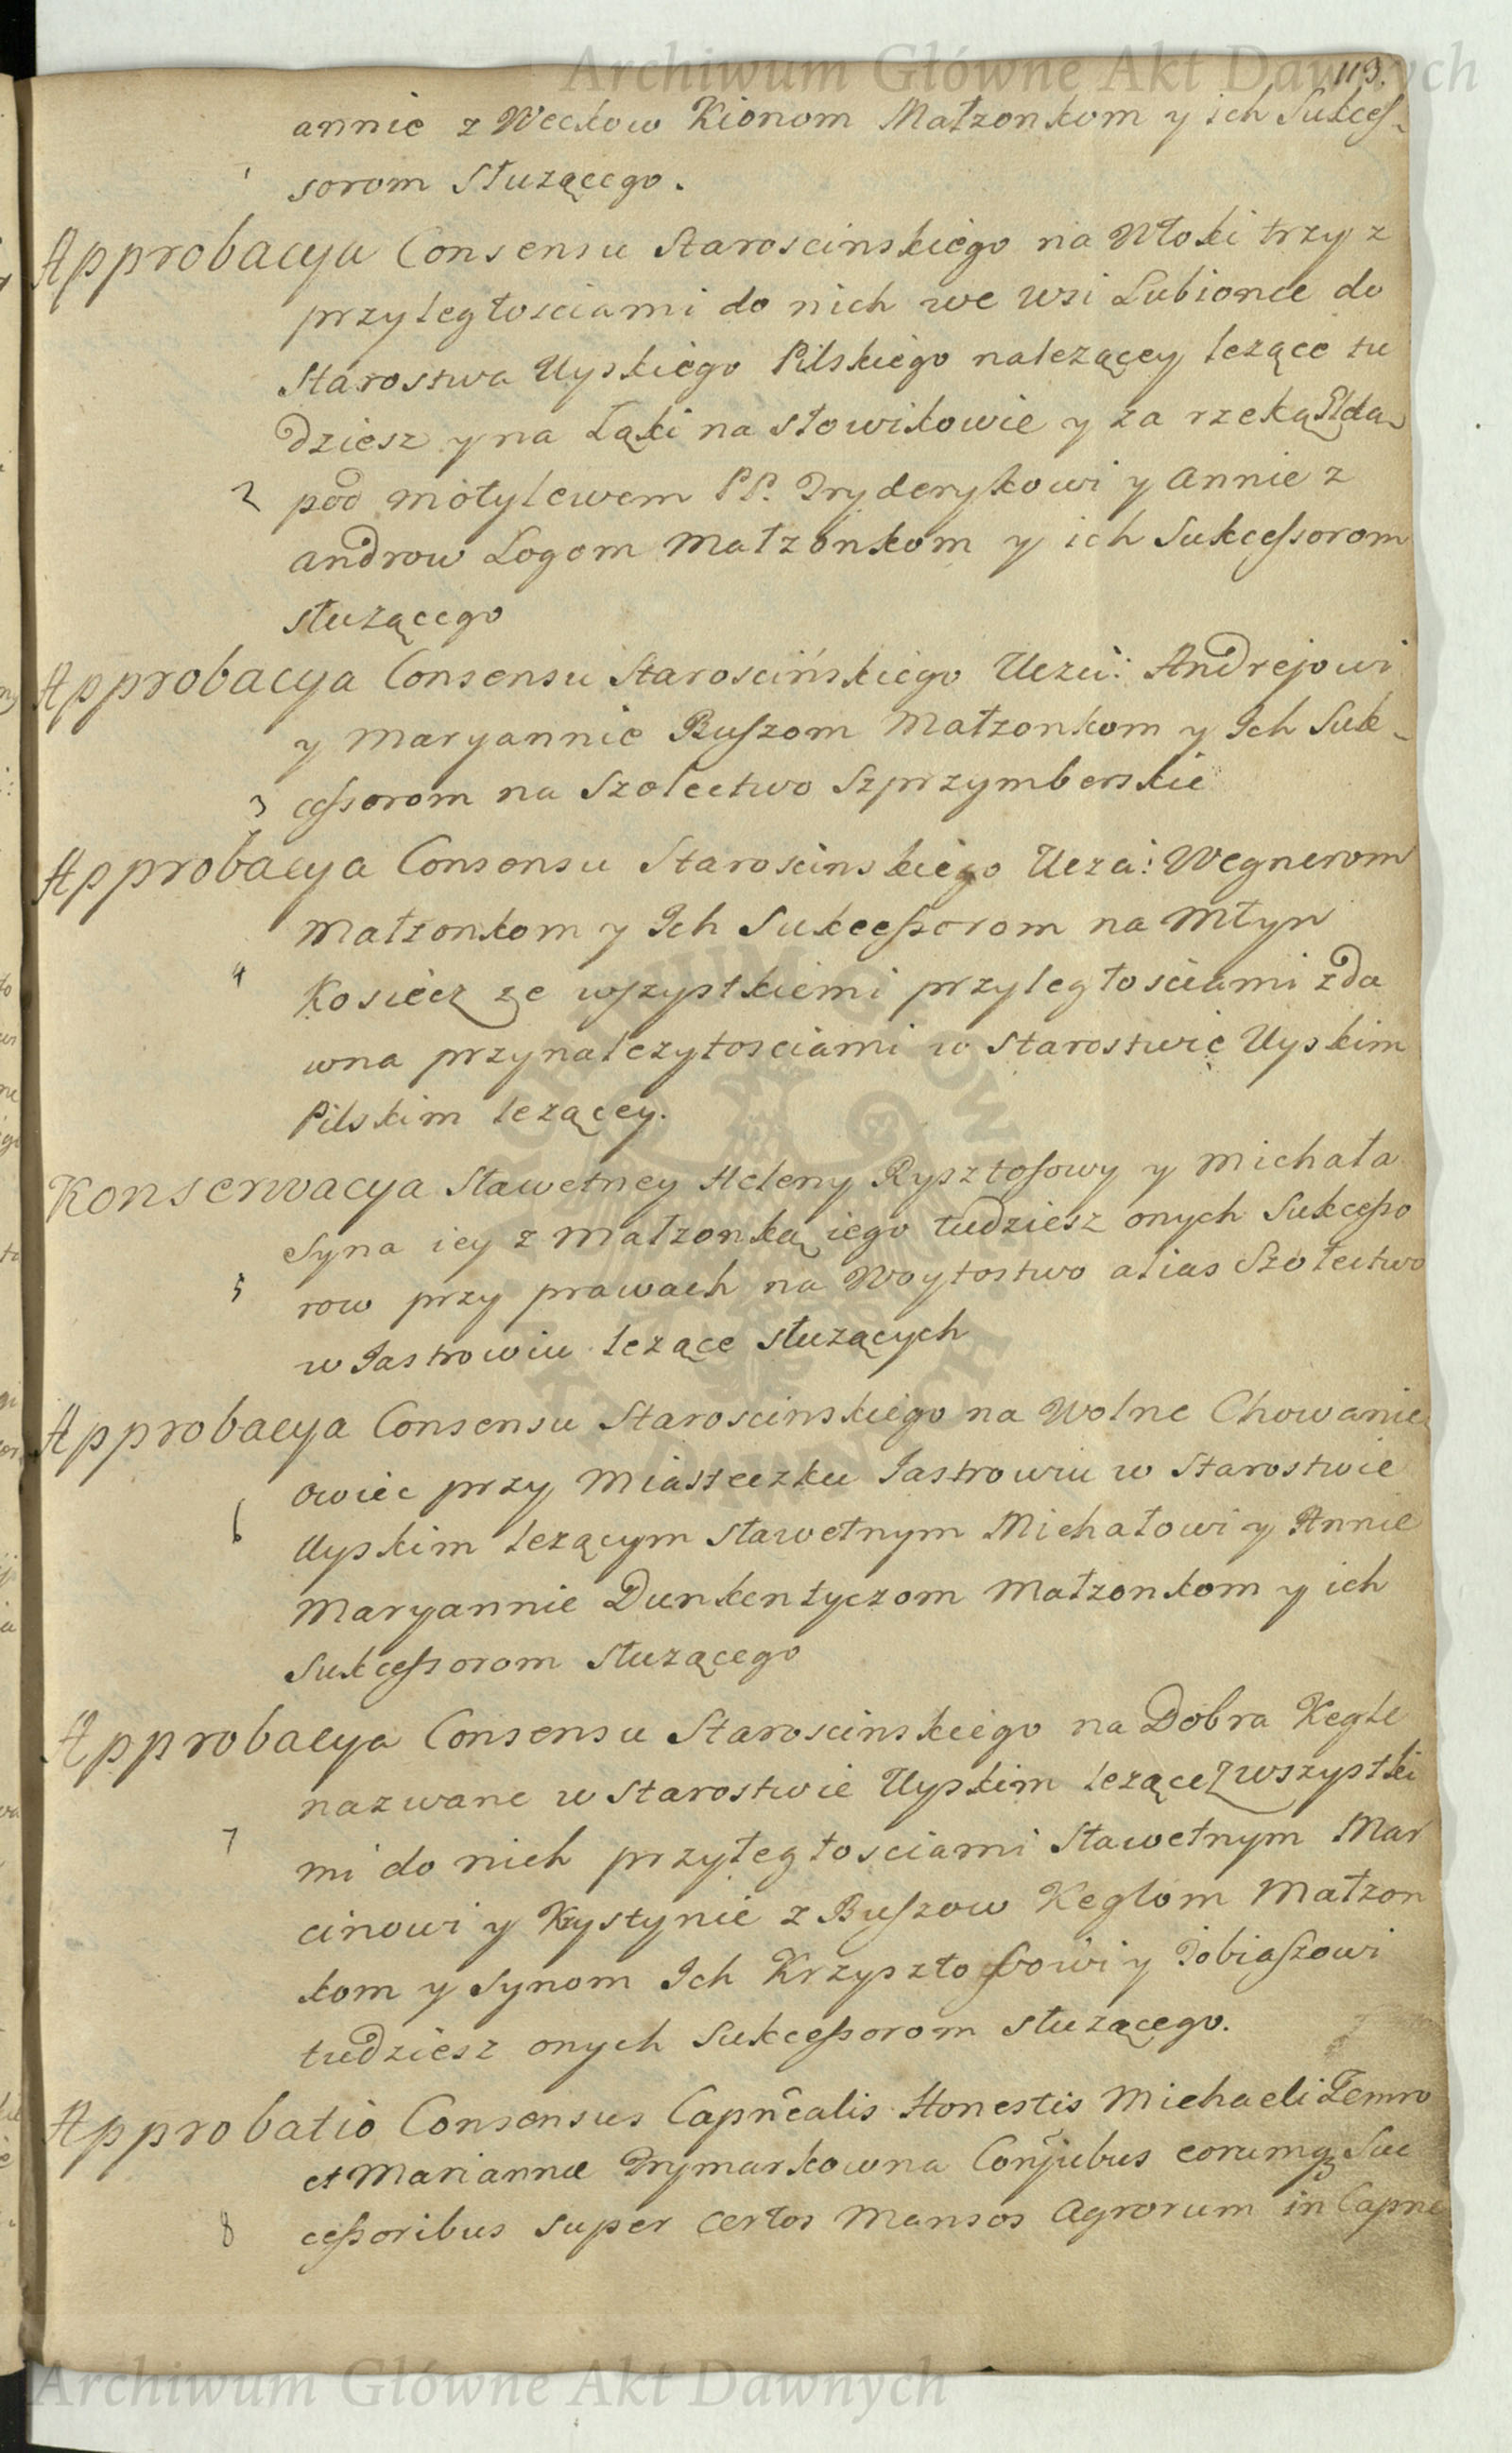 Archiwum Główne Akt Dawnych
119.
annie z Weckow Kionom Małzonkom y ich Sukces-
1 sorom służącego.
Approbacya Consensu Staroscinskiego na Włoki trzy z
przyległosciami do nich we wsi Lubionce do
Starostwa Uyskiego Pilskiego nalezącey lezące tu
dziesz y na Łąki na Słowikowie y za rzeką Głda
2 pod Motylewem PP. Fryderykowi y Annie z
androw Logom Małzonkom y ich Sukcessorom
służącego
Approbacya Consensu Starościńskiego Uczci: Andrejowi
y Maryannie Buszom Małzonkom y Ich Suk-
3 cessorom na Szolectwo Szprzymberskie
Approbacya Consensu Staroscinskiego Uczci: Wegnerom
Małzonkom y Ich Sukcessorom na Młyn
4 Kosiecz ze wszystkiemi przyległosciami zda
wna przynalezytosciami w Starostwie Uyskim
Pilskim lezącey.
Konserwacya Sławetney Heleny Rysztofowy y Michała
Syna iey z Małzonką iego tudziesz onych Sukcesso
5 row przy prawach na Woytostwo alias Szołectwo
w Jastrowiu lezące służących
Approbacya Consensu Staroscinskiego na Wolne Chowanie
owiec przy Miasteczku Jastrowiu w Starostwie
6 Uyskim lezącym Sławetnym Michałowi y Annie
Maryannie Dunkentyczom Małzonkom y ich
Sukcessorom Służącego
Approbacya Consensu Staroscinskiego na Dobra Kegle
nazwane w Starostwie Uyskim lezące z wszystki
7 mi do nich przyległosciami Sławetnym Mar
cinowi y Krystynie z Buszow Keglom Małzon
kom y Synom Ich Krzysztofowi y Tobiaszowi
tudziesz onych Sukcessorom służącego.
Approbatio Consensus Capnealis Honestis Michaeli Temro
et Marianna Frymarkowna Conjubus eorumq Suc
8 cessoribus super certos Mansos Agrorum in Capne
Archiwum Główne Akt Dawnych